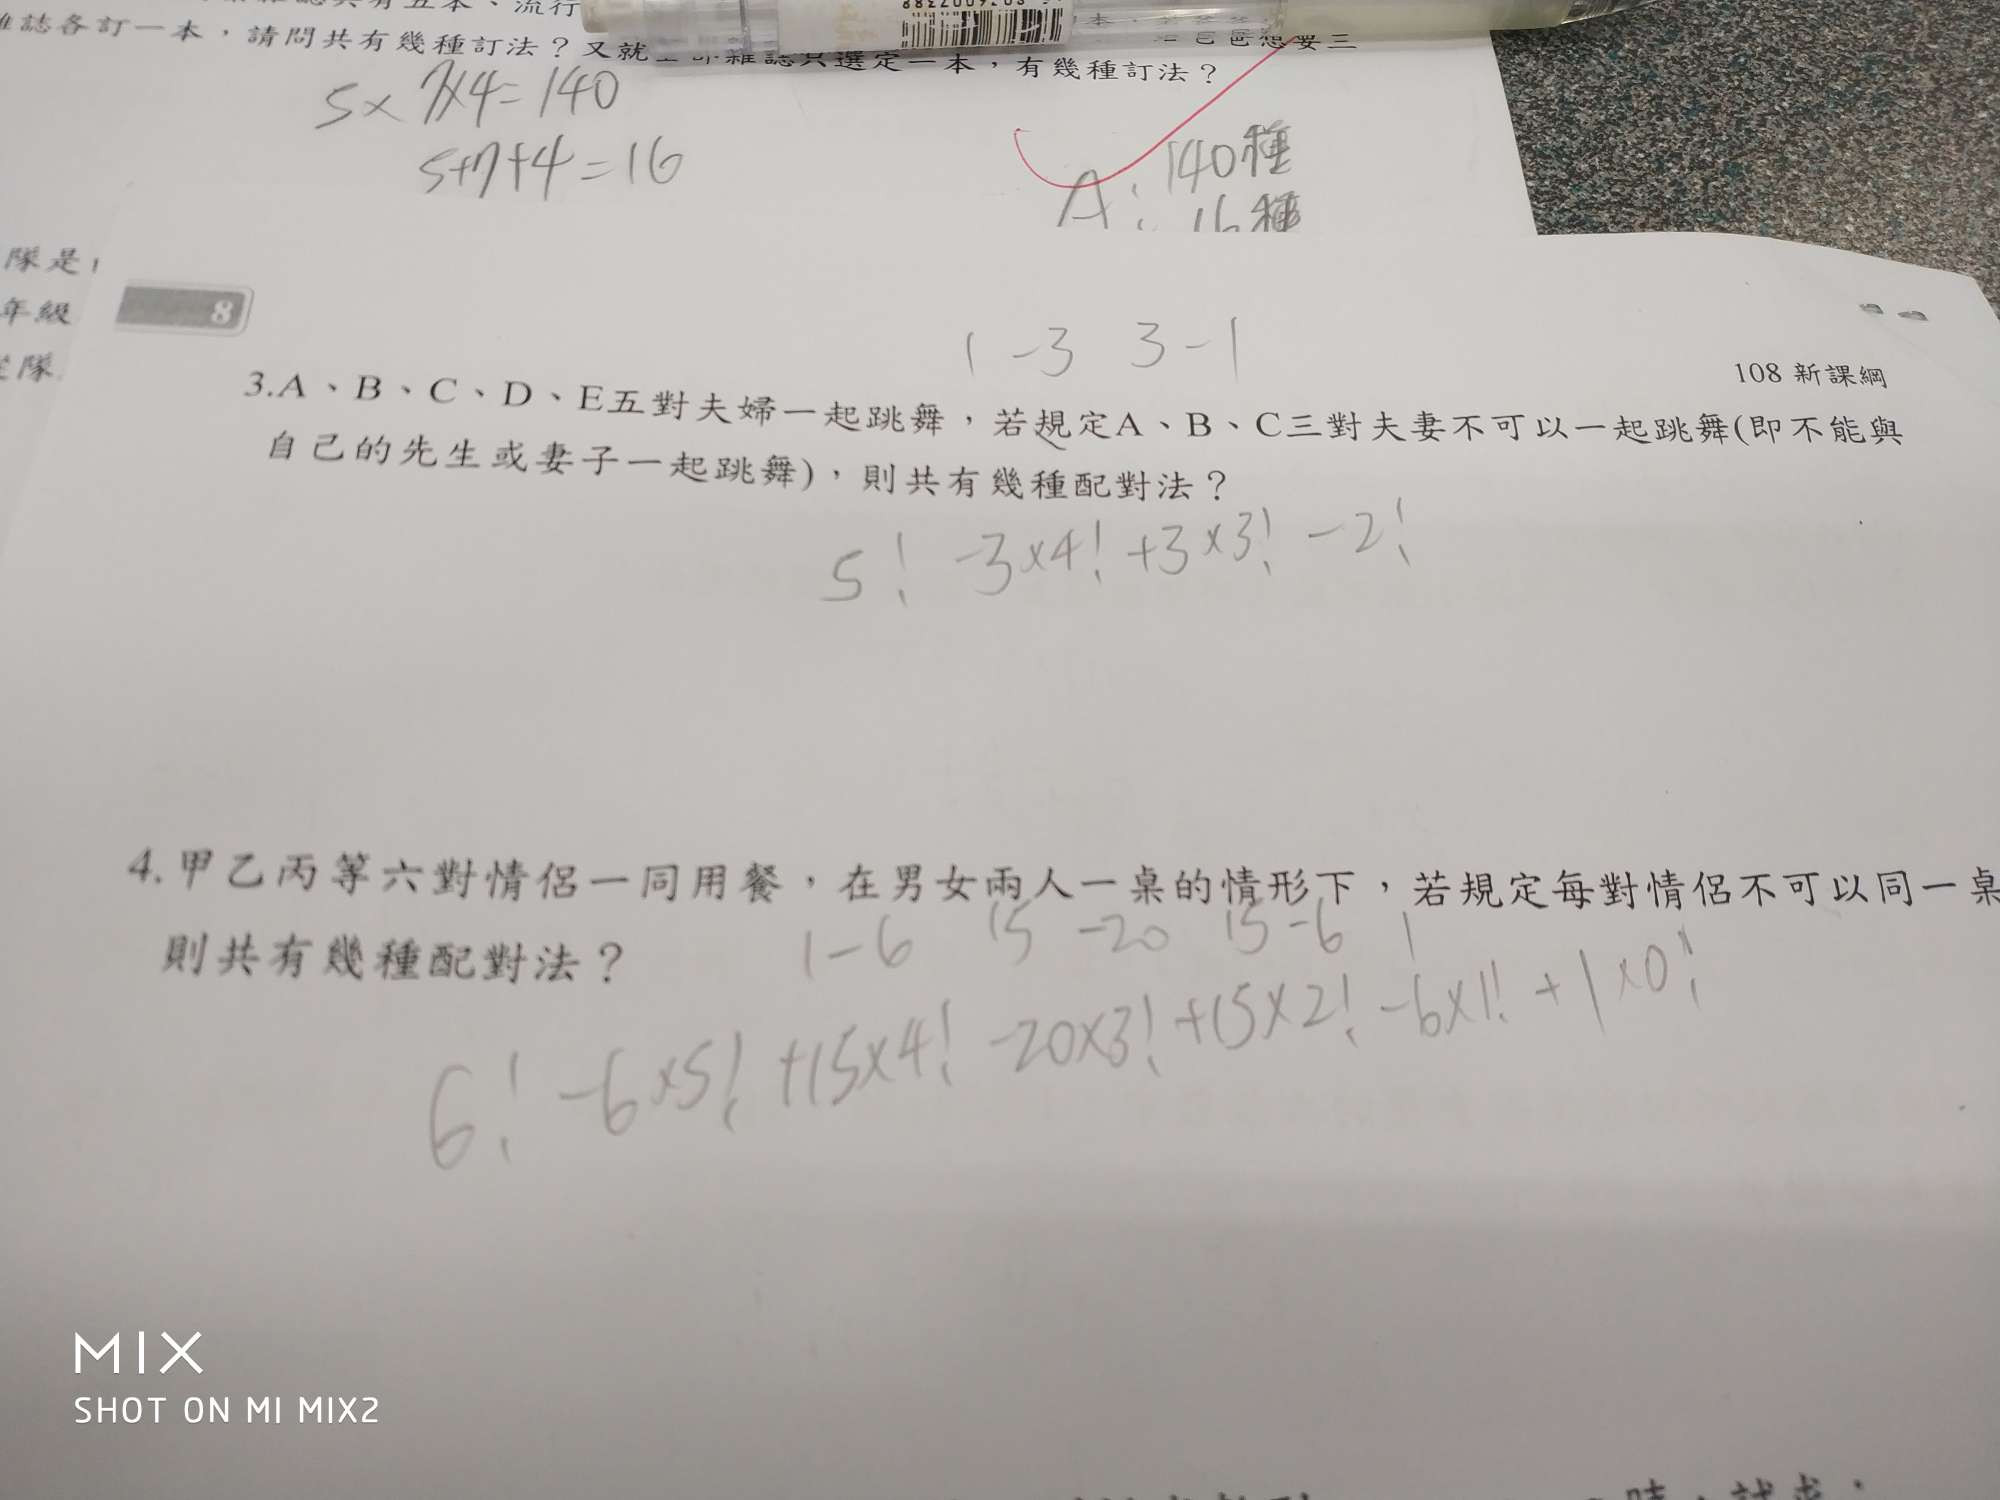 雜誌共有五本、流行
雜誌各訂一本，請問共有幾種訂法？又就
爸爸想要三
雜誌只選定一本，有幾種訂法？
5×7×4=140
5+7+4=16
A: 140種
16種
隊是
年級
隊
8
1-3 3-1
108 新課綱
3.A、B、C、D、E五對夫婦一起跳舞，若規定A、B、C三對夫妻不可以一起跳舞(即不能與
自己的先生或妻子一起跳舞)，則共有幾種配對法？
5! -3×4! +3×3! -2!
4.甲乙丙等六對情侶一同用餐，在男女兩人一桌的情形下，若規定每對情侶不可以同一桌
則共有幾種配對法？
1-6 15 -20 15-6 1
6! -6×5! +15×4! -20×3! +15×2! -6×1! +1×0!
時，試求：
MIX
SHOT ON MI MIX2